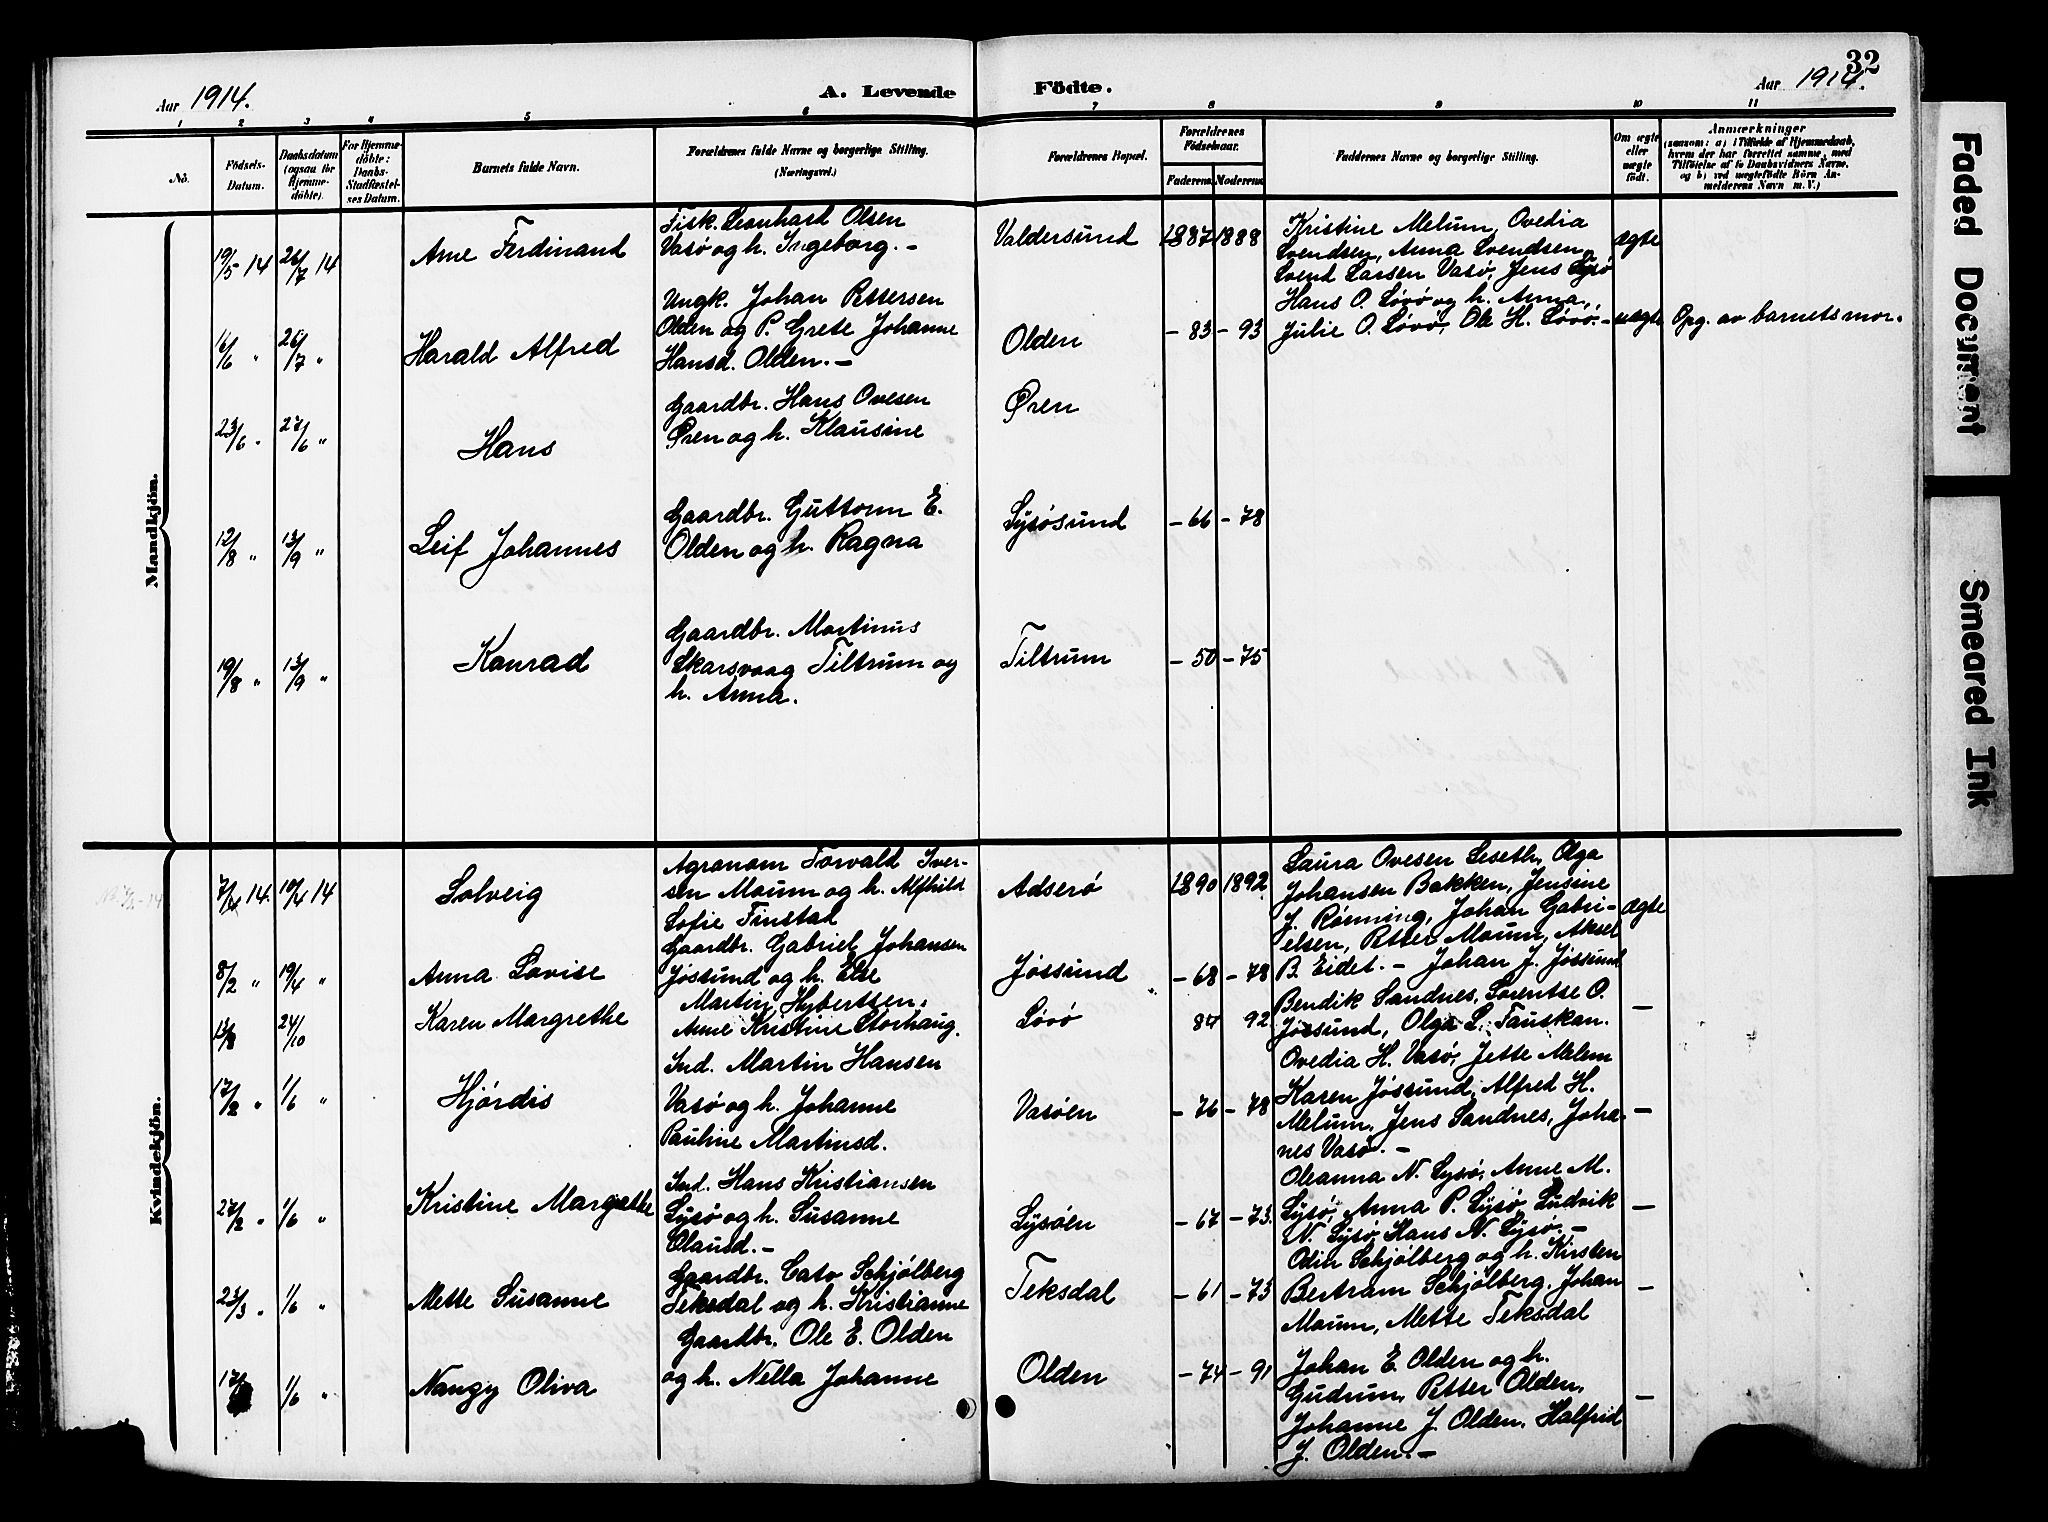 32
Aar 1914.
A. Levende Födte.
Aar 1914.
1 2 3 4 5 6 7 8 9 10 11
No.
Födsels-
Datum.
Daabsdatum
(ogsaa for
Hjemme-
döbte).
For Hjemme-
döbte:
Daabs-
Stadfæstel-
ses Datum.
Barnets fulde Navn.
Forældrenes fulde Navne og borgerlige Stilling.
(Næringsvei.)
Forældrenes Bopæl.
Forældrenes
Födselsaar.
Faderens. Moderens.
Faddernes Navne og borgerlige Stilling.
Om ægte
eller
uægte
födt.
Anmærkninger
(saasom: a) i Tilfælde af Hjemmedaab,
hvem der har forrettet samme, med
Tilföielse af to Daabsvidners Navne,
og b) ved uægtefödte Börn An-
melderens Navn m. V.)
Mandkjön.
19/5 14 26/7 14
Arne Ferdinand
Fisk. Leonhard Olsen
Vasø og h. Ingeborg. –
Valdersund
1887 1888
Kristine Melum, Ovedia
Svendsen, Anna Svendsen,
Svend Larsen Vasø, Jens Lysø
ægte
16/6 " 26/7 "
Harald Alfred
Ungk. Johan Pettersen
Olden og P. Grete Johanne
Hansd. Olden. –
Olden
– 83 – 93
Hans O. Løvø og h. Anna,
Julie O. Løvø, Ole H. Løvø. –
uægte
Opg. av barnets mor.
23/6 " 27/6 "
Hans
Gaardbr. Hans Ovesen
Øren og h. Klausine
Øren
12/8 " 13/9 "
Leif Johannes
Gaardbr. Guttorm E.
Olden og h. Ragna
Lysøsund
– 66 – 78
19/8 " 13/9 "
Konrad
Gaardbr. Martinus
Skarsvaag Tiltrum og
h. Anna.
Tiltrum
– 50 – 75
Kvindekjön.
14. 19/4 14
Solveig
Agronom Torvald Iver-
sen Moum og h. Alfhild
Sofie Finstad
Adserø
1890 1892
Laura Ovesen Leseth, Olga
Johansen Bakken, Jensine
J. Rønning, Johan Gabri-
elsen, Petter Moum, Aksel
B. Eidet. –
ægte
8/2 " 19/4 "
Anna Lovise
Gaardbr. Gabriel Johansen
Jøssund og h. Else
Jøssund
– 68 – 78
Johan J. Jøssund
Bendik Sandnes, Lorentse O.
Jøssund, Olga L. Fauskan.
–
13/8 24/10
Karen Margrethe
Martin Hybertsen,
Anne Kristine Storhaug.
Løvø
84 92
17/2 " 1/6 "
Hjørdis
Ind. Martin Hansen
Vasø og h. Johanne
Pauline Martinsd.
Vasøen
– 76 – 78
Ovedia H. Vasø, Jette Melem
Karen Jøssund, Alfred H.
Melum, Jens Sandnes, Joha-
nes Vasø. –
–
27/2 " 1/6 "
Kristine Margrethe
Ind. Hans Kristiansen
Lysø og h. Susanne
Olausd. –
Lysøen
– 67 – 73.
Oleanna N. Lysø, Anne M.
Lysø, Anna P. Lysø, Ludvik
N. Lysø, Hans N. Lysø. –
–
23/3 " 1/6 "
Mette Susanne
Gaardbr. Cato Schjølberg
Teksdal og h. Kristianne
Teksdal
– 61 – 73
Odin Schjølberg og h. Kirsten
Bertram Schjølberg, Johan
Moum, Mette Teksdal
–
1/6 "
Nangy Oliva
Gaardbr. Ole E. Olden
og h. Nella Johanne
Olden
– 74 – 91
Johan E. Olden og h.
Gudrun, Petter Olden,
Johanne J. Olden, Halfrid
J. Olden. –
–
Faded Document
Smeared Ink